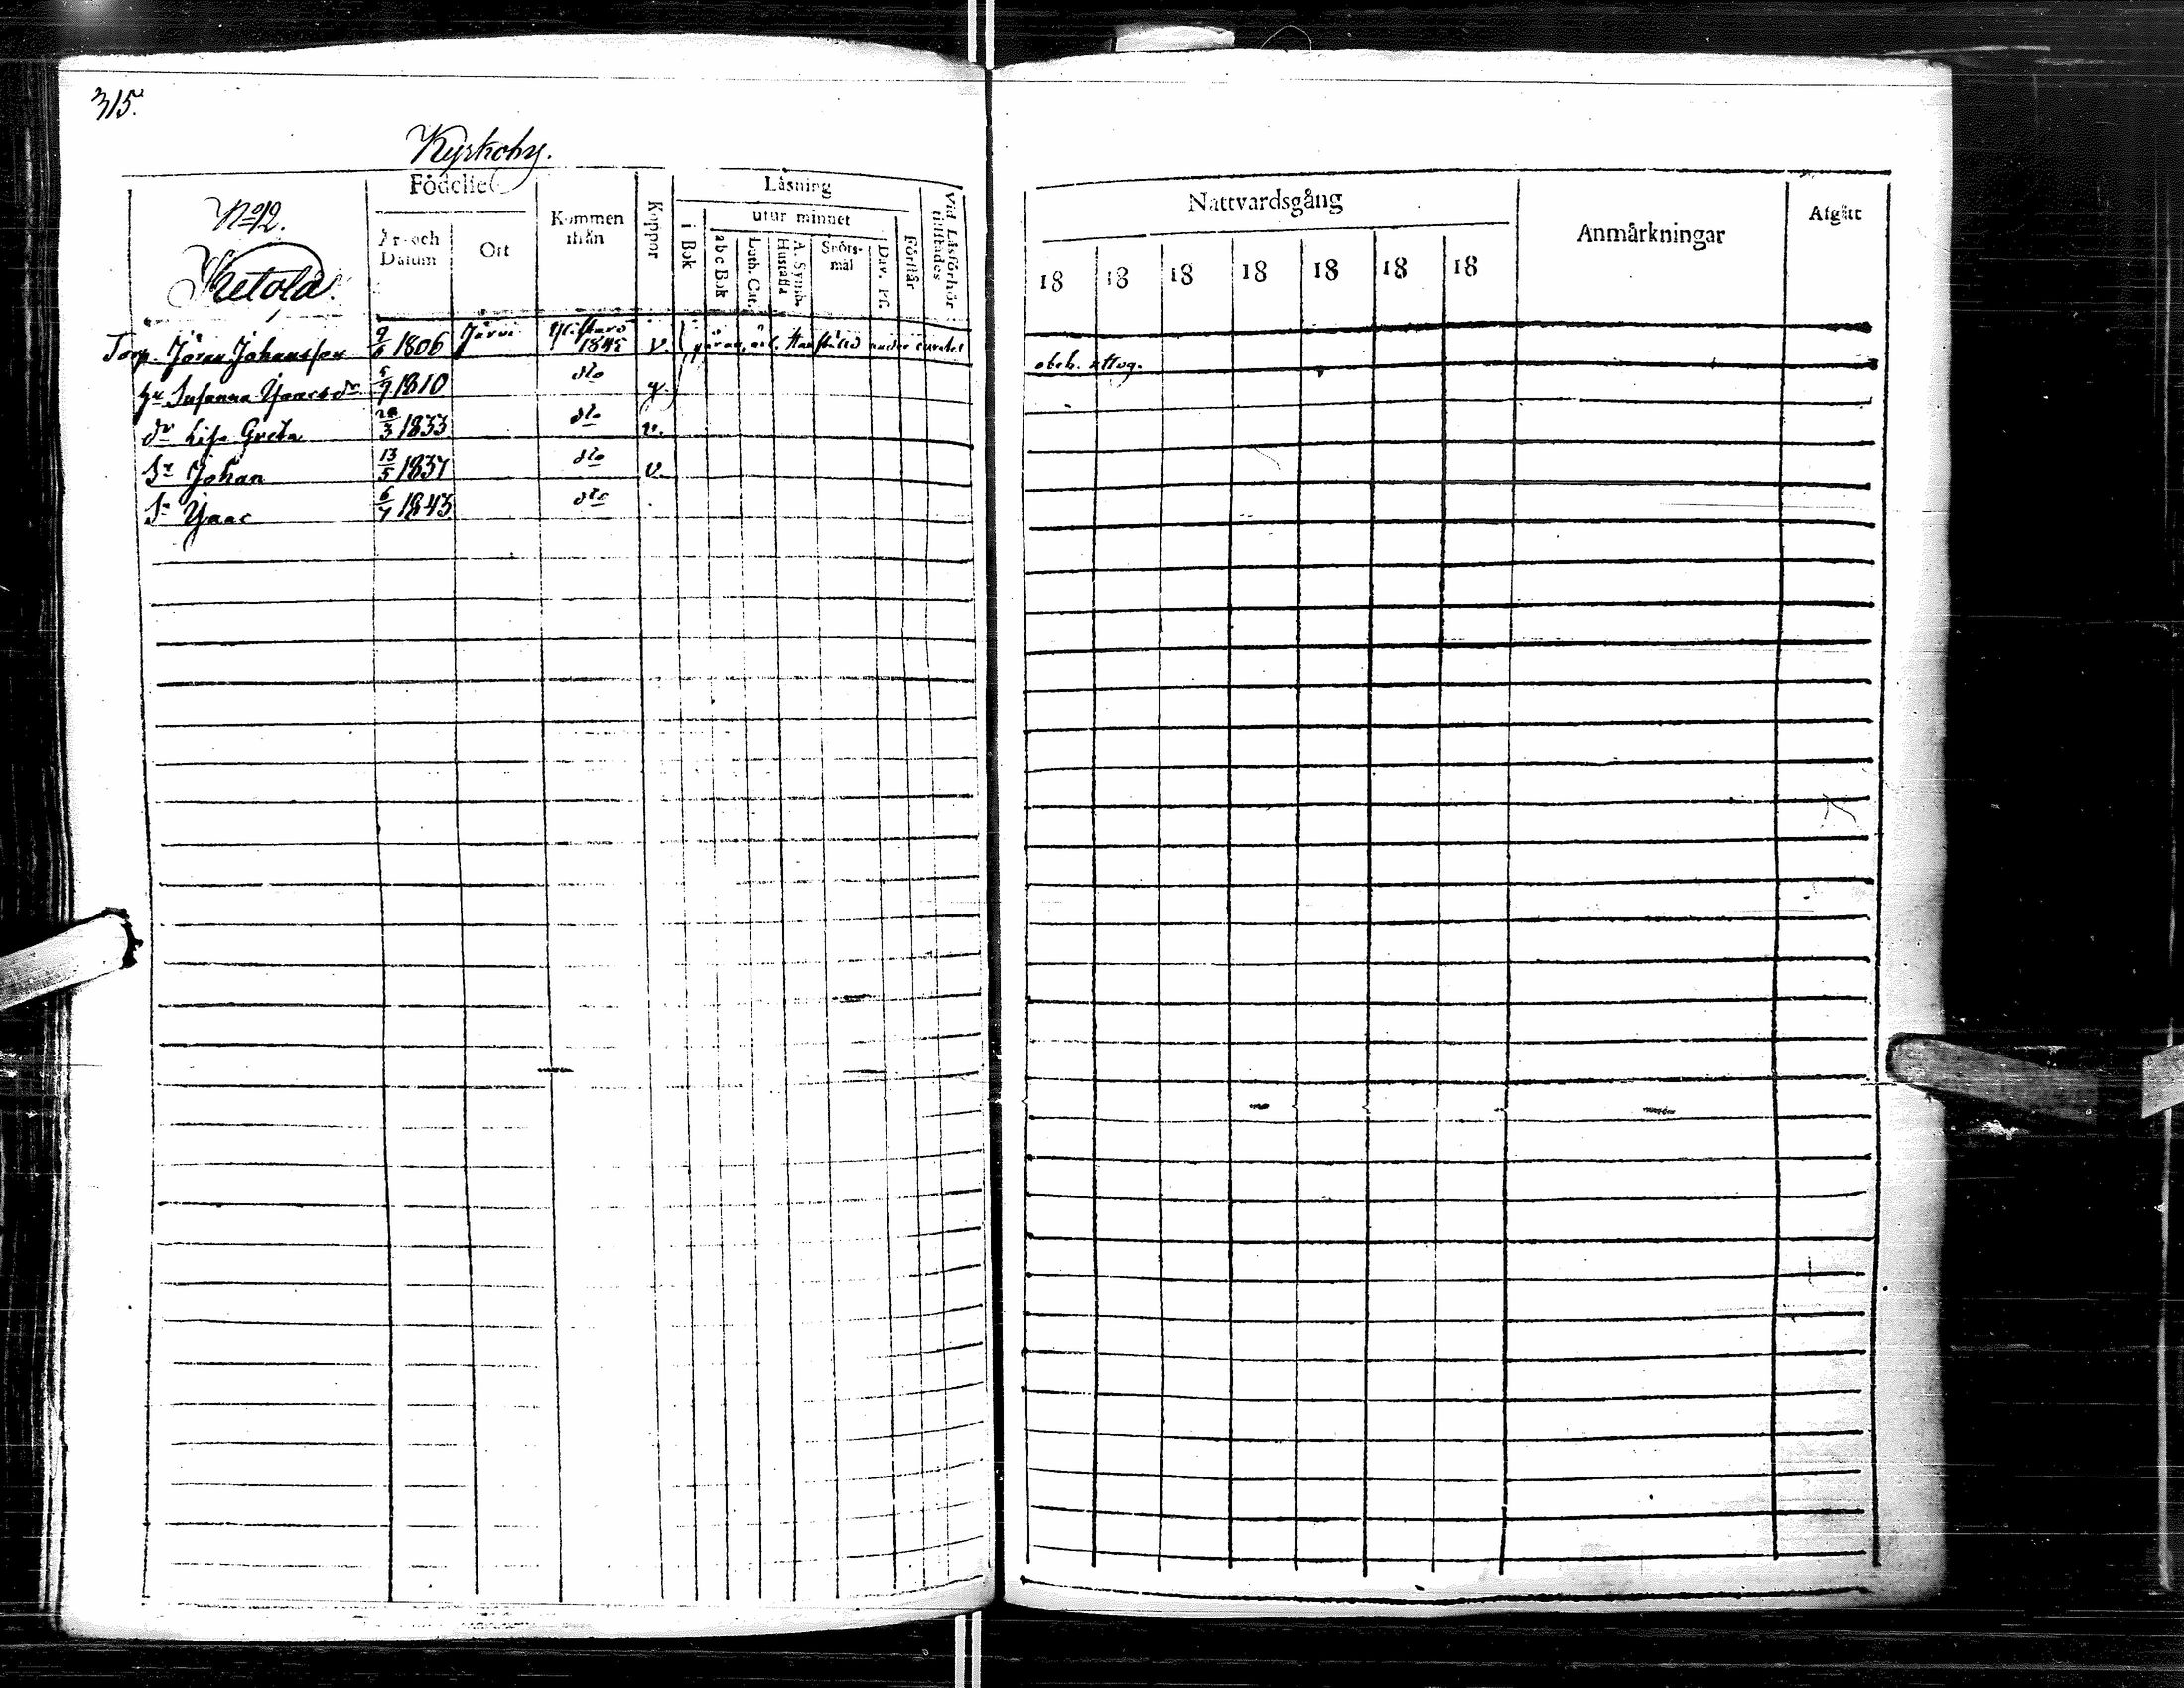 315.
Kyrkoby.
No 12.
Ketola.
Födelse
År och Datum
Ort
Kommen ifrån
Koppor
Låsning
i Bok
utur minnet
a b c Bok
Luth. Cat.
A. Symb. Hustafla
Spörs-mål
Dav. Ps.
Förstår
Vid Låsförhör tillstädes
Torp. Jöran Johansson 9/6 1806 Järvi 1845 v.
hu Susanna Isaacsdr 5/9 1810 dto v.
dr Lisa Greta 3 1833 dto v.
Sn Johan 13/5 1837 dto v.
Sn Isaac 6/7 1843 dto
Nattvardsgång
18 18 18 18 18 18 18
Anmårkningar
Afgått
obeh. nttvg.